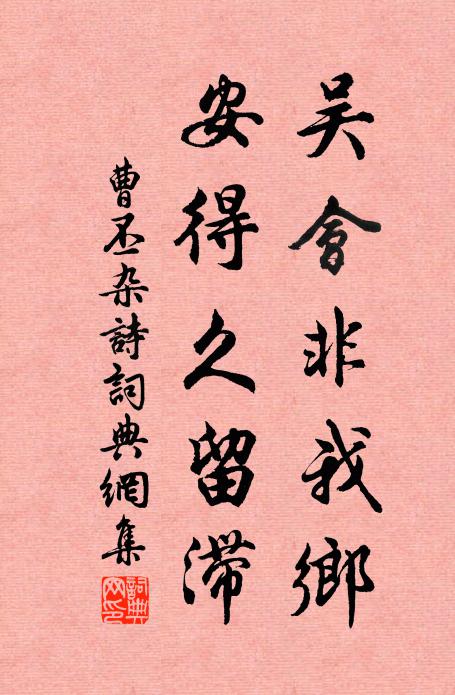 吴會非我鄉
安得久留滯
曹丕杂詩詞典網集
詞典網印